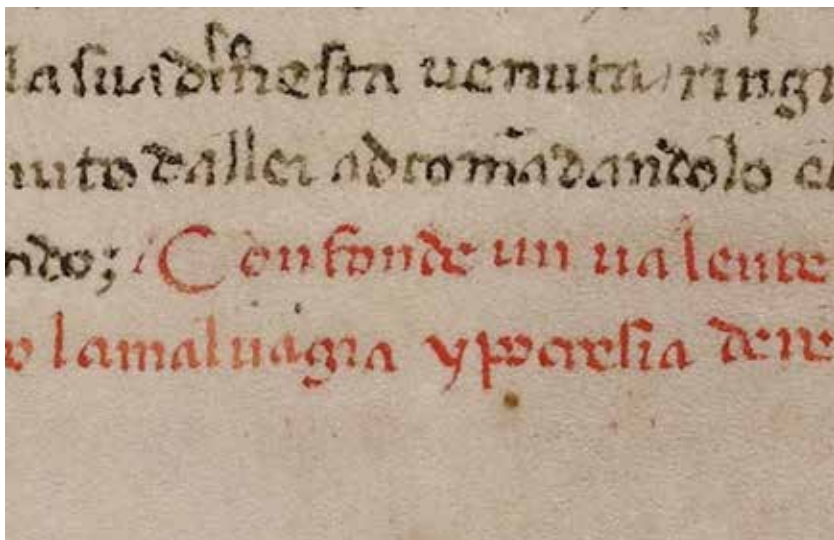 la sua disonesta venuta ring
iuto dallei adcomādandolo
ndo; Confonde un ualente
lamaluagia ypocresia dere